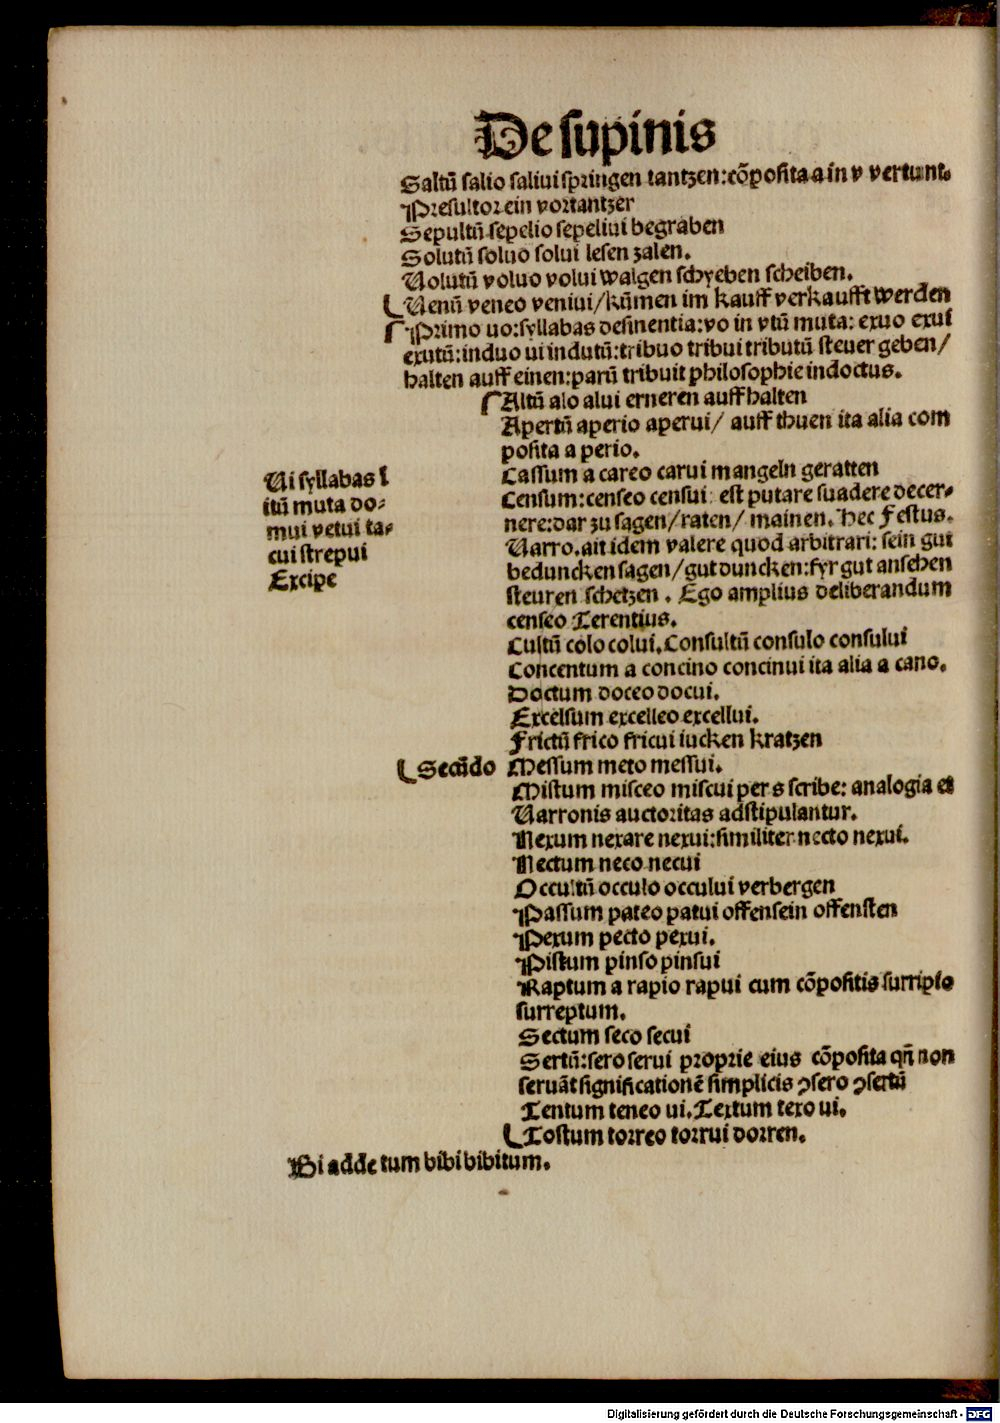 De supinis
Saltū salio salivi springen tantzen: cōposita a in v vertunt.
Presultor ein vortantzer
Sepultū sepelio sepelivi begraben
Solutū soluo solui lesen zalen.
Uolutū voluo volui walgen schyeben scheiben.
Uenū veneo venivi/kūmen im kauff verkaufft werden
Primo uo: syllabas desinentia: vo in vtū muta: exuo exui
exutū: induo ui indutū: tribuo tribui tributū steuer geben/
halten auff einen: parū tribuit philosophie indoctus.
Altū alo alui erneren auffhalten
Apertū aperio aperui/ auff thuen ita alia com
posita a perio.
Cassum a careo carui mangeln geratten
Ui syllabas ī
Censum: censeo censui: est putare suadere decer-
itū muta do-
nere: dar zu sagen/raten/ mainen. Hec Festus.
mui vetui ta-
Uarro. ait idem valere quod arbitrari: sein gut
cui strepui
beduncken sagen/gut duncken: fyr gut ansehen
Excipe
steuren schetzen. Ego amplius deliberandum
censeo Terentius.
Cultū colo colui. Consultū consulo consului
Concentum a concino concinui ita alia a cano.
Doctum doceo docui.
Excelsum excelleo excellui.
Frictū frico fricui iucken kratzen
Secūdo Messum meto messui.
Mistum misceo miscui per s scribe: analogia et
Uarronis auctoritas adstipulantur.
Nexum nexare nexui: similiter necto nexui.
Nectum neco necui
Occultū occulo occului verbergen
Passum pateo patui offensein offensten
Pexum pecto pexui.
Pistum pinso pinsui
Raptum a rapio rapui cum cōpositis surripio
surreptum.
Sectum seco secui
Sertū: sero serui proprie eius cōposita qn̄ non
seruāt significationē simplicis ꝯsero ꝯsertū
Tentum teneo ui. Textum texo ui.
Tostum torreo torrui dorren.
Bi adde tum bibi bibitum.
Digitalisierung gefördert durch die Deutsche Forschungsgemeinschaft - DFG